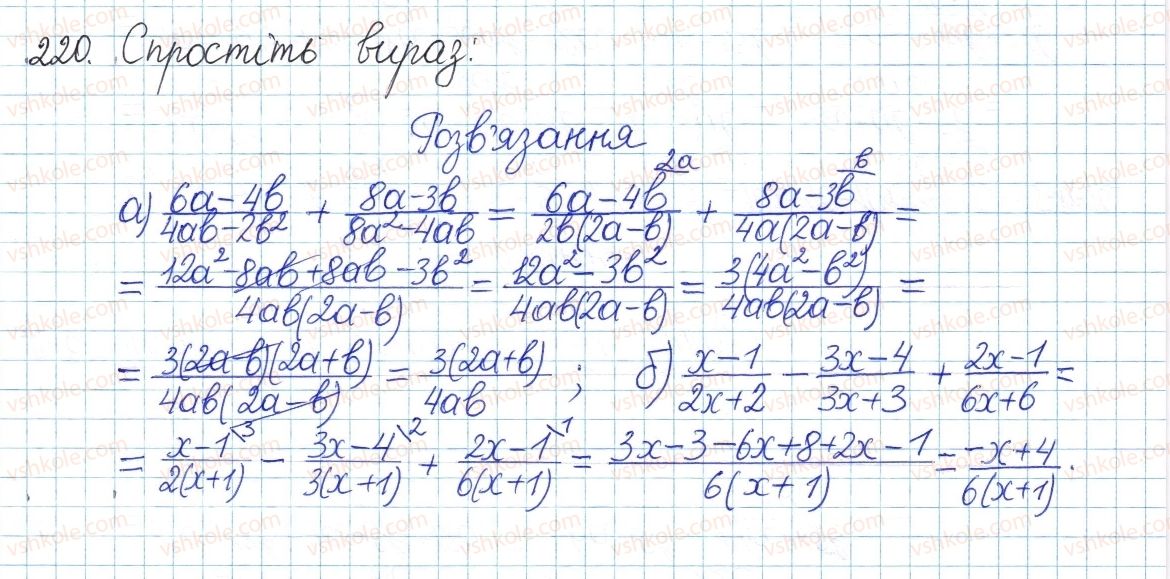 220. Спростіть вираз:
Розв'язання
а) \frac{6a-4b}{4ab-2b^2} + \frac{8a-3b}{8a^2-4ab} = \frac{6a-4b}{2b(2a-b)}^{2a} + \frac{8a-3b}{4a(2a-b)}^{b} =
= \frac{12a^2-8ab+8ab-3b^2}{4ab(2a-b)} = \frac{12a^2-3b^2}{4ab(2a-b)} = \frac{3(4a^2-b^2)}{4ab(2a-b)} =
= \frac{3(2a-b)(2a+b)}{4ab(2a-b)} = \frac{3(2a+b)}{4ab} ; б) \frac{x-1}{2x+2} - \frac{3x-4}{3x+3} + \frac{2x-1}{6x+6} =
= \frac{x-1}{2(x+1)}^{\3} - \frac{3x-4}{3(x+1)}^{\2} + \frac{2x-1}{6(x+1)}^{\1} = \frac{3x-3-6x+8+2x-1}{6(x+1)} = \frac{-x+4}{6(x+1)} .